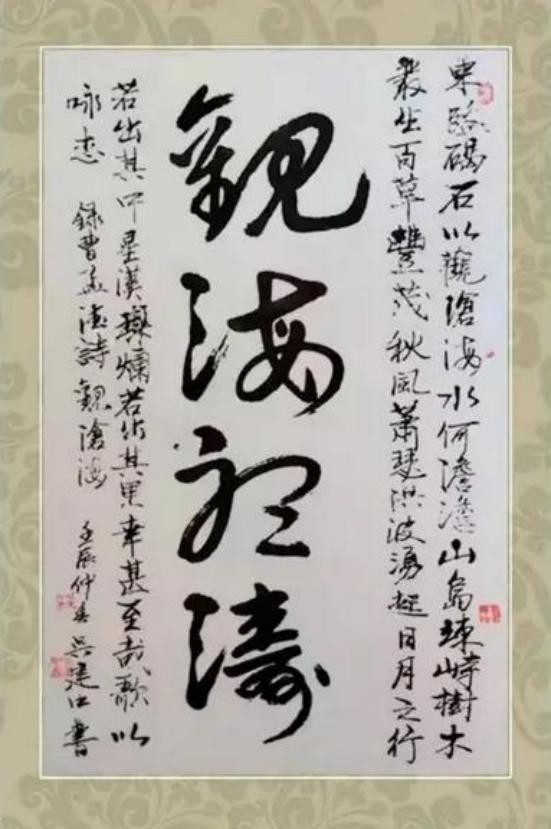 東臨碣石以觀滄海水何澹澹山島竦峙樹木
叢生百草豐茂秋風蕭瑟洪波湧起日月之行
觀海聽濤
若出其中星漢燦爛若出其里幸甚至哉歌以
咏志 録曹孟德詩觀滄海 壬辰仲春 吴建書